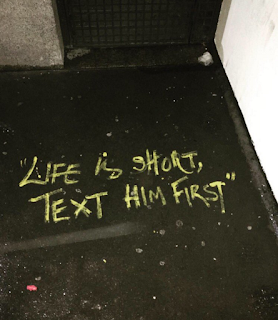 "LIFE is SHORT,
TEXT HIM FIRST"